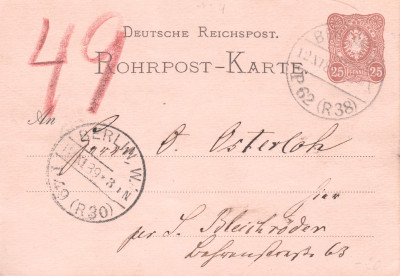 49
DEUTSCHE REICHSPOST.
ROHRPOST-KARTE
25 PFENNIG 25
P. 62 (R38)
An
Herrn O. Osterloh
BERLIN, W.
P 49 (R30)
hier
per S. Bleichröder
Behrenstraße 63